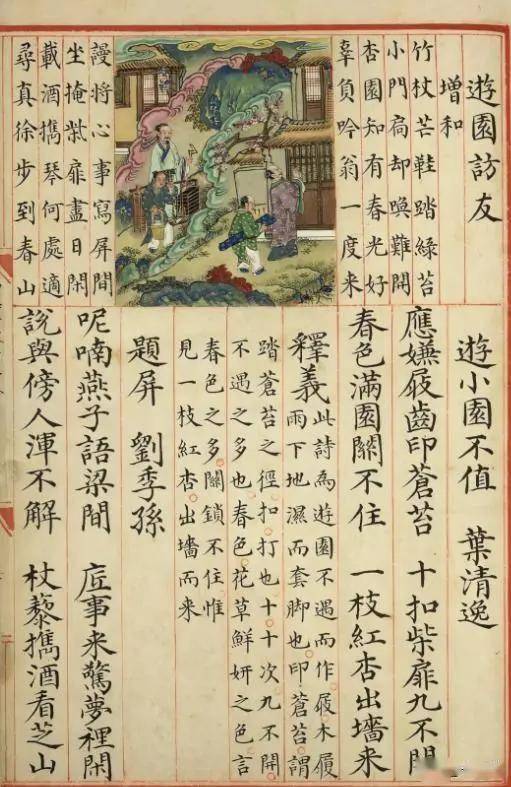 遊園訪友
增和
竹杖芒鞋踏綠苔
小門扃却喚難開
杏園知有春光好
辜負吟翁一度來
謾將心事寫屏間
坐掩柴扉盡日閑
載酒擕琴何處適
尋真徐步到春山
遊小園不值 葉清逸
應嫌屐齒印蒼苔 十扣柴扉九不開
春色滿園關不住 一枝紅杏出墻來
釋義 此詩為遊園不遇而作屐木履
雨下地濕而套脚也印蒼苔謂
踏蒼苔之徑扣打也十十次九不開
不遇之多也春色花草鮮妍之色言
春色之多關鎖不住惟
見一枝紅杏出墻而來
題屏 劉季孫
呢喃燕子語梁間 底事来驚夢裡閑
說與傍人渾不解 杖藜擕酒看芝山